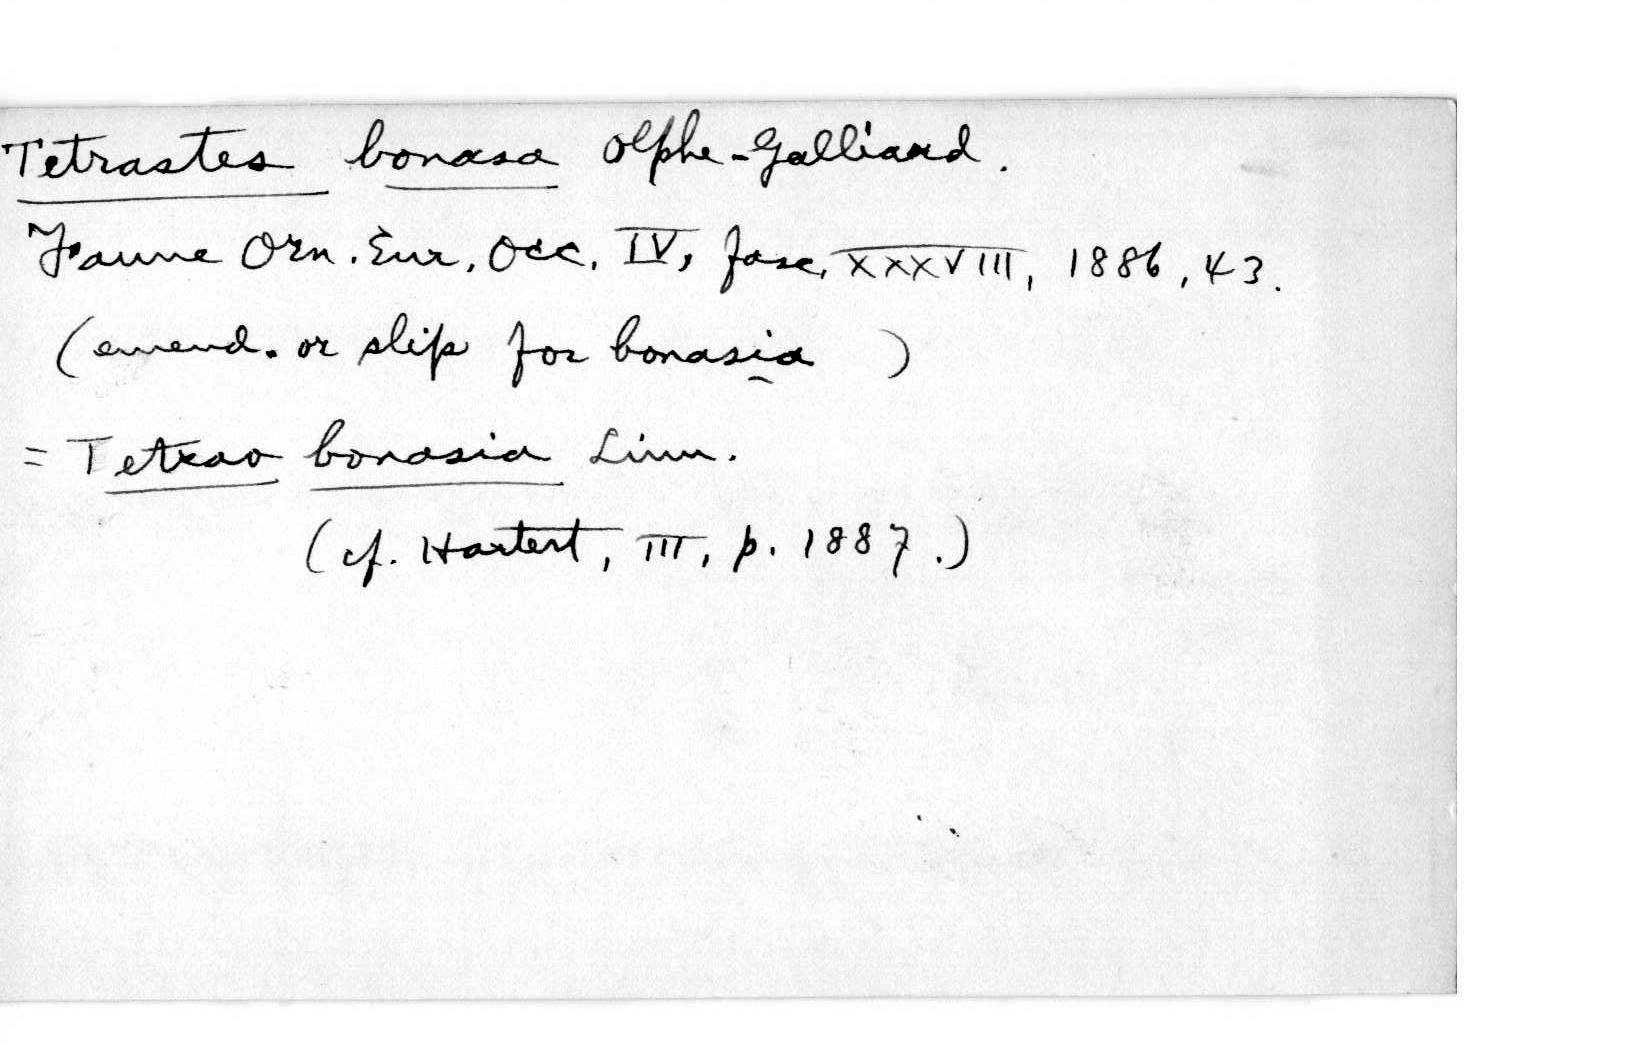 Tetrastes bonasa Olphe-Galliard.
Faune Orn. Eur. Occ. IV, fasc. XXXVIII, 1886, 43.
(emend. or slip for bonasia )
= Tetrao bonasia Linn.
(cf. Hartert, III, p. 1887.)